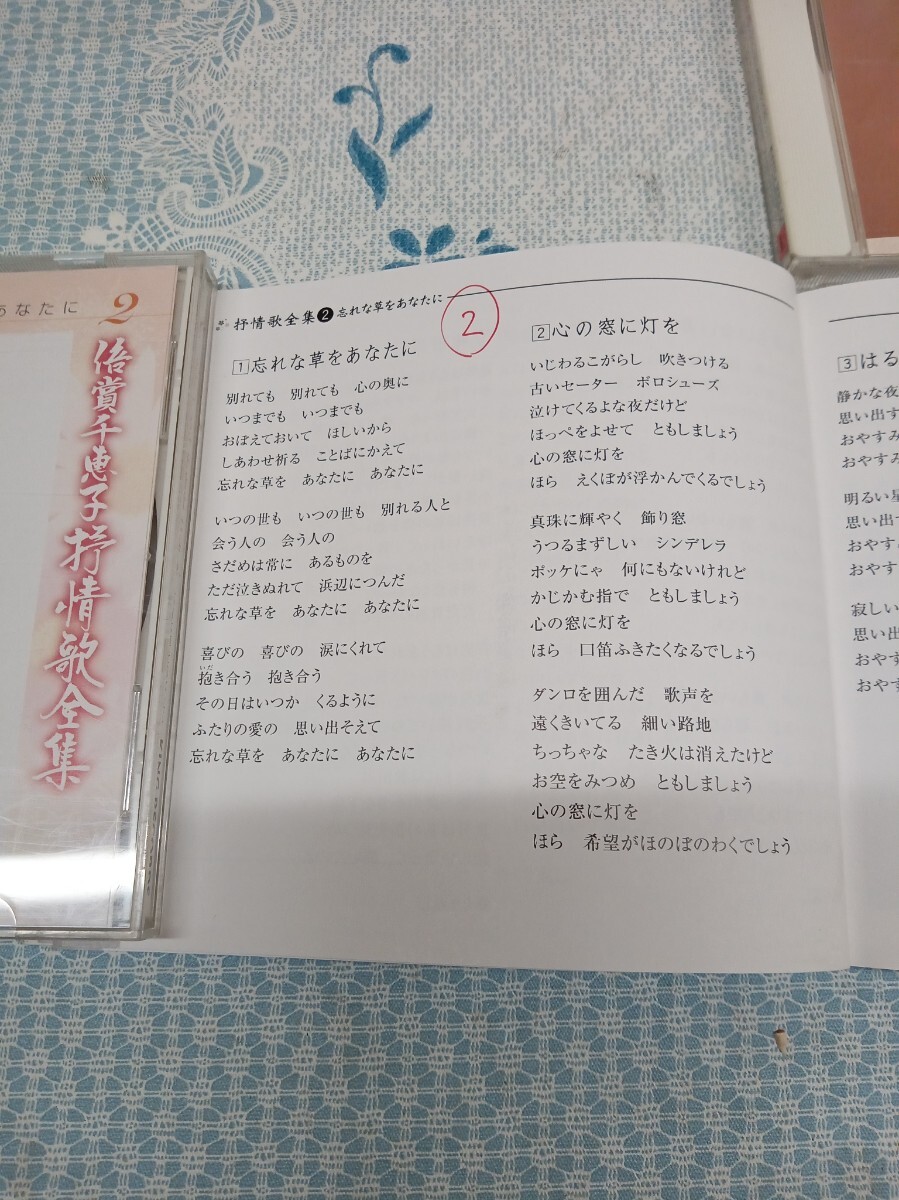 あなたに 2
倍賞千恵子抒情歌全集
抒情歌全集❷忘れな草をあなたに
2
1 忘れな草をあなたに
別れても 別れても 心の奥に
いつまでも いつまでも
おぼえておいて ほしいから
しあわせ祈る ことばにかえて
忘れな草を あなたに あなたに
いつの世も いつの世も 別れる人と
会う人の 会う人の
さだめは常に あるものを
ただ泣きぬれて 浜辺につんだ
忘れな草を あなたに あなたに
喜びの 喜びの 涙にくれて
いだ
抱き合う 抱き合う
その日はいつか くるように
ふたりの愛の 思い出そえて
忘れな草を あなたに あなたに
2 心の窓に灯を
いじわるこがらし 吹きつける
古いセーター ボロシューズ
泣けてくるよな夜だけど
ほっぺをよせて ともしましょう
心の窓に灯を
ほら えくぼが浮かんでくるでしょう
真珠に輝やく 飾り窓
うつるまずしい シンデレラ
ポッケにゃ 何にもないけれど
かじかむ指で ともしましょう
心の窓に灯を
ほら 口笛ふきたくなるでしょう
ダンロを囲んだ 歌声を
遠くきいてる 細い路地
ちっちゃな たき火は消えたけど
お空をみつめ ともしましょう
心の窓に灯を
ほら 希望がほのぼのわくでしょう
3 はる
静かな夜
思い出す
おやすみ
おやすみ
明るい星
思い出す
おやす
おやす
寂しい
思い出
おやす
おやす